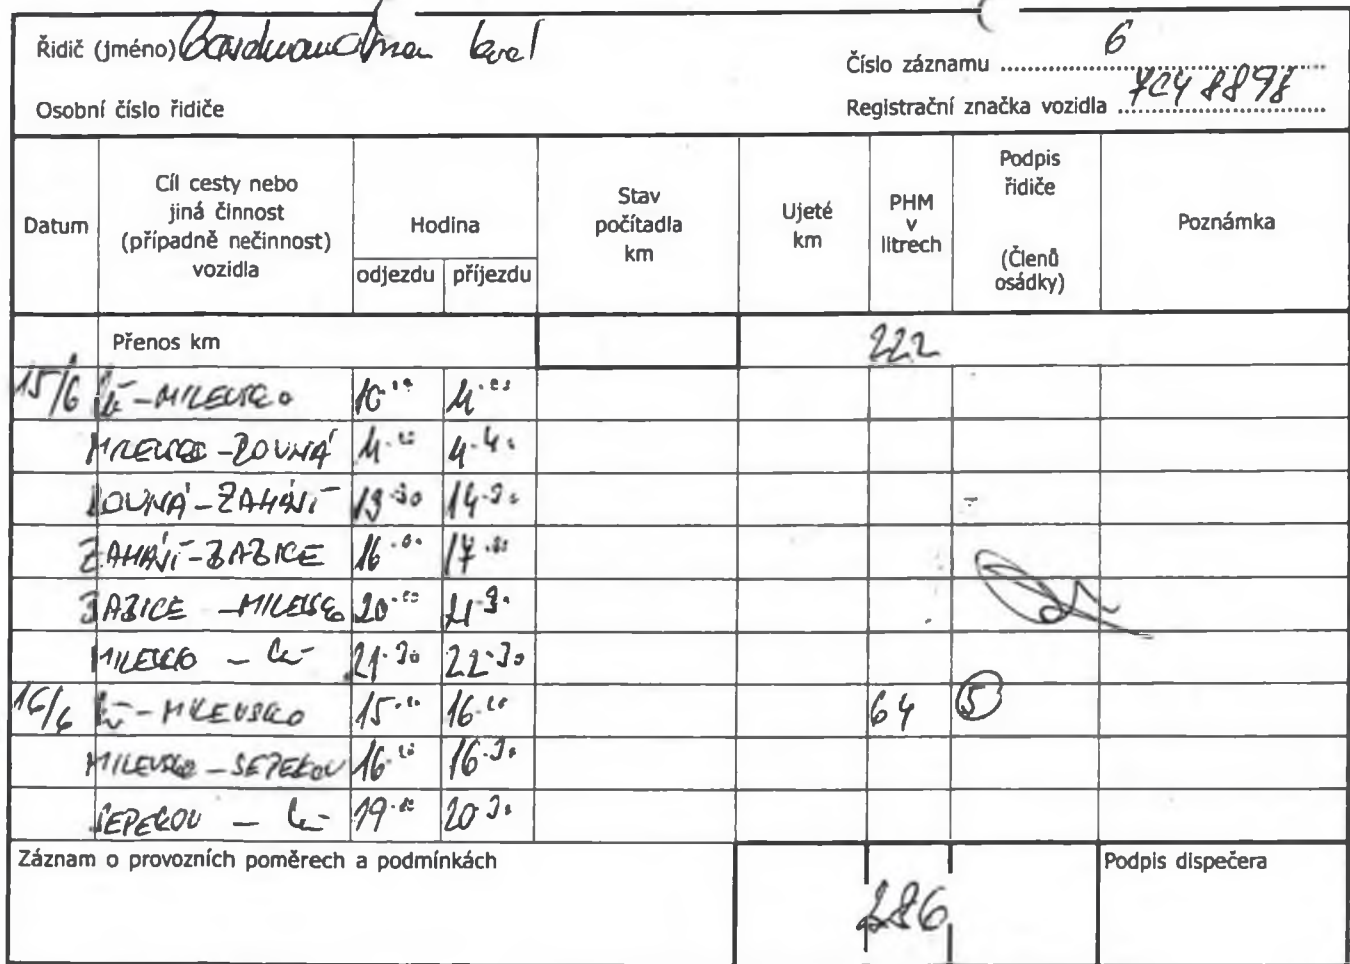 Řidič (jméno)
Číslo záznamu 6
Osobní číslo řidiče
Registrační značka vozidla 7C4 8898
Datum
Cíl cesty nebo jiná činnost (případně nečinnost) vozidla
Hodina
odjezdu příjezdu
Stav počítadla km
Ujeté km
PHM v litrech
Podpis řidiče (Členů osádky)
Poznámka
Přenos km 222
15/6 - MILEVSKO 10.00 11.00
MILEVSKO - ZOUNÁ 11.00 11.40
ZOUNÁ - ZAHÁNÍ 13.30 14.30
ZAHÁNÍ - 16.00 17.00
- MILEVSKO 20.00 21.30
MILEVSKO - 21.30 22.30
16/6 - MILEVSKO 15.00 16.00 64 5
MILEVSKO - SEPEKOV 16.00 16.30
SEPEKOV - 19.00 20.30
Záznam o provozních poměrech a podmínkách
286
Podpis dispečera